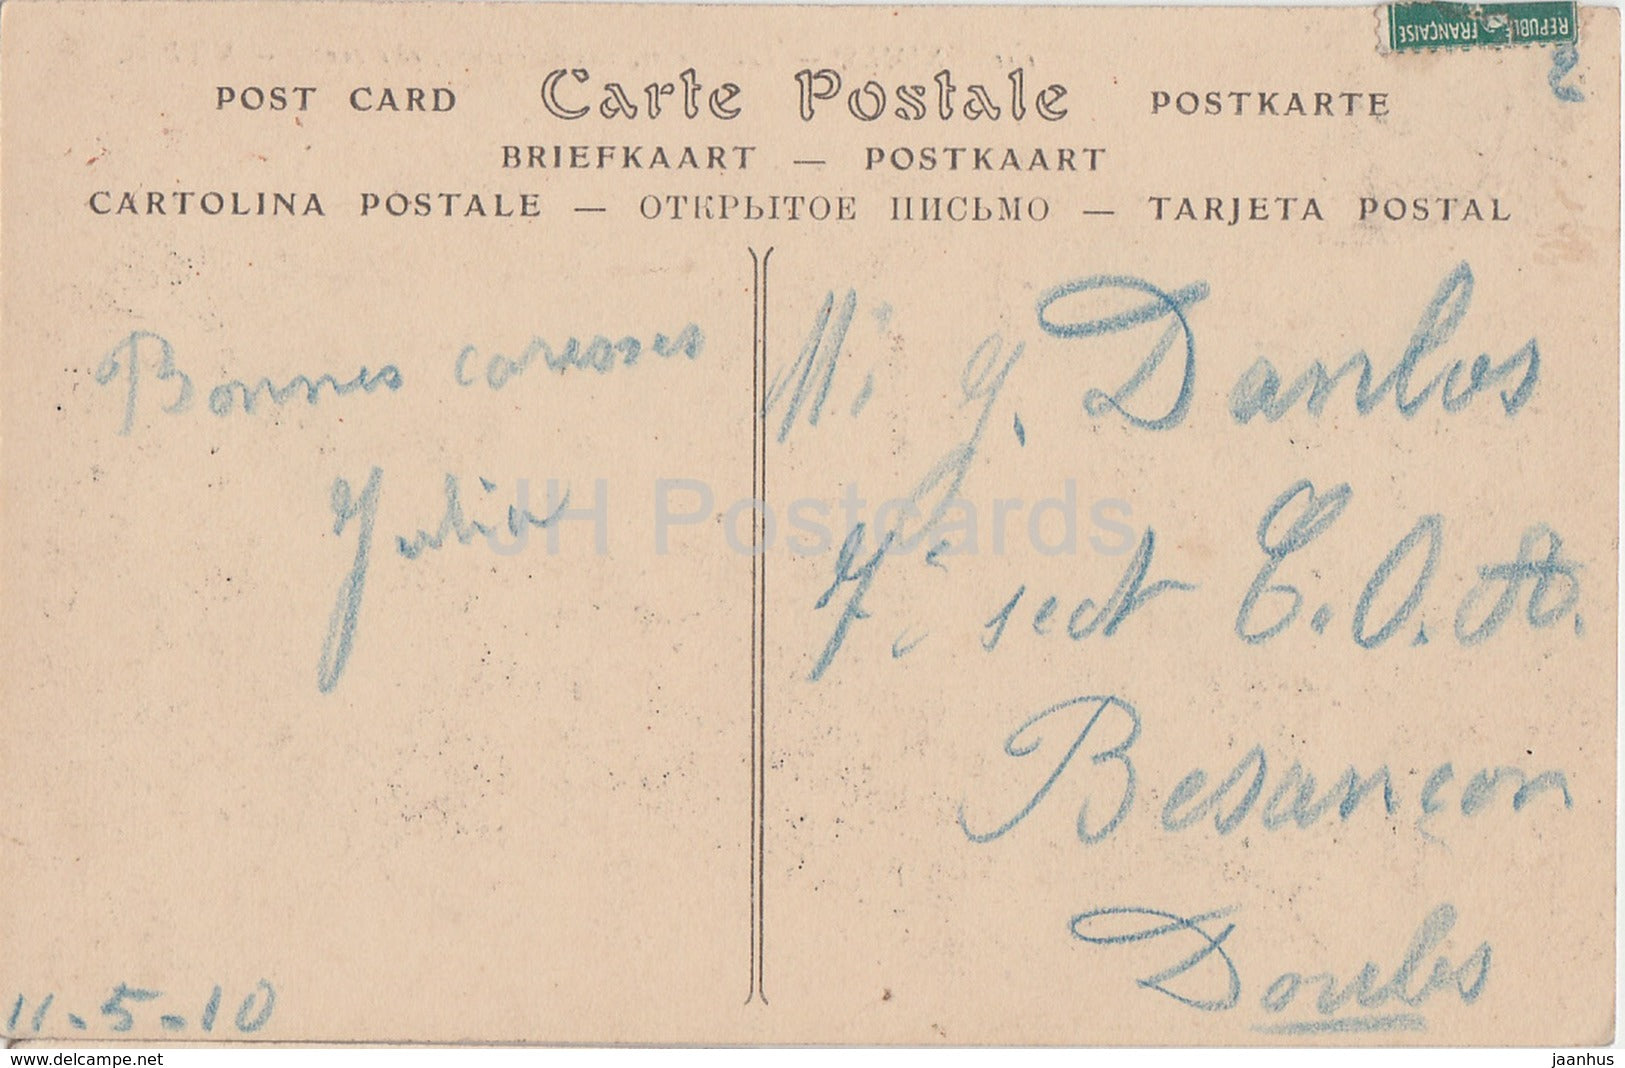 REPUBLI FRANÇAISE
POST CARD Carte Postale POSTKARTE
BRIEFKAART — POSTKAART
CARTOLINA POSTALE — ОТКРЫТОЕ ПИСЬМО — TARJETA POSTAL
Bonnes caresses
Julia
11-5-10
Mr J. Danlos
7e sect C.O.A.
Besançon
Doubs
JH Postcards
www.delcampe.net
jaanhus